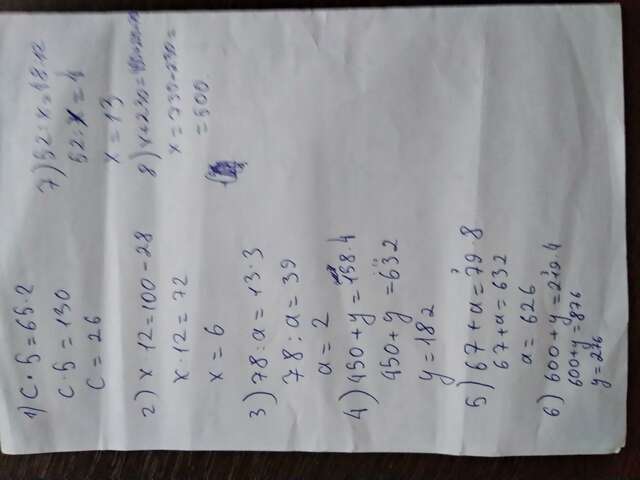 1) c · 5 = 65 · 2
c · 5 = 130
c = 26
2) x · 12 = 100 - 28
x · 12 = 72
x = 6
3) 78 : a = 13 · 3
78 : a = 39
a = 2
4) 450 + y = 158 · 4
450 + y = 632
y = 182
5) 67 + a = 79 · 8
67 + a = 632
a = 626
6) 600 + y = 219 · 4
600 + y = 876
y = 276
7) 52 : x = 48 : 12
52 : x = 4
x = 13
8) x + 230 =
x = 730 - 230 =
= 500